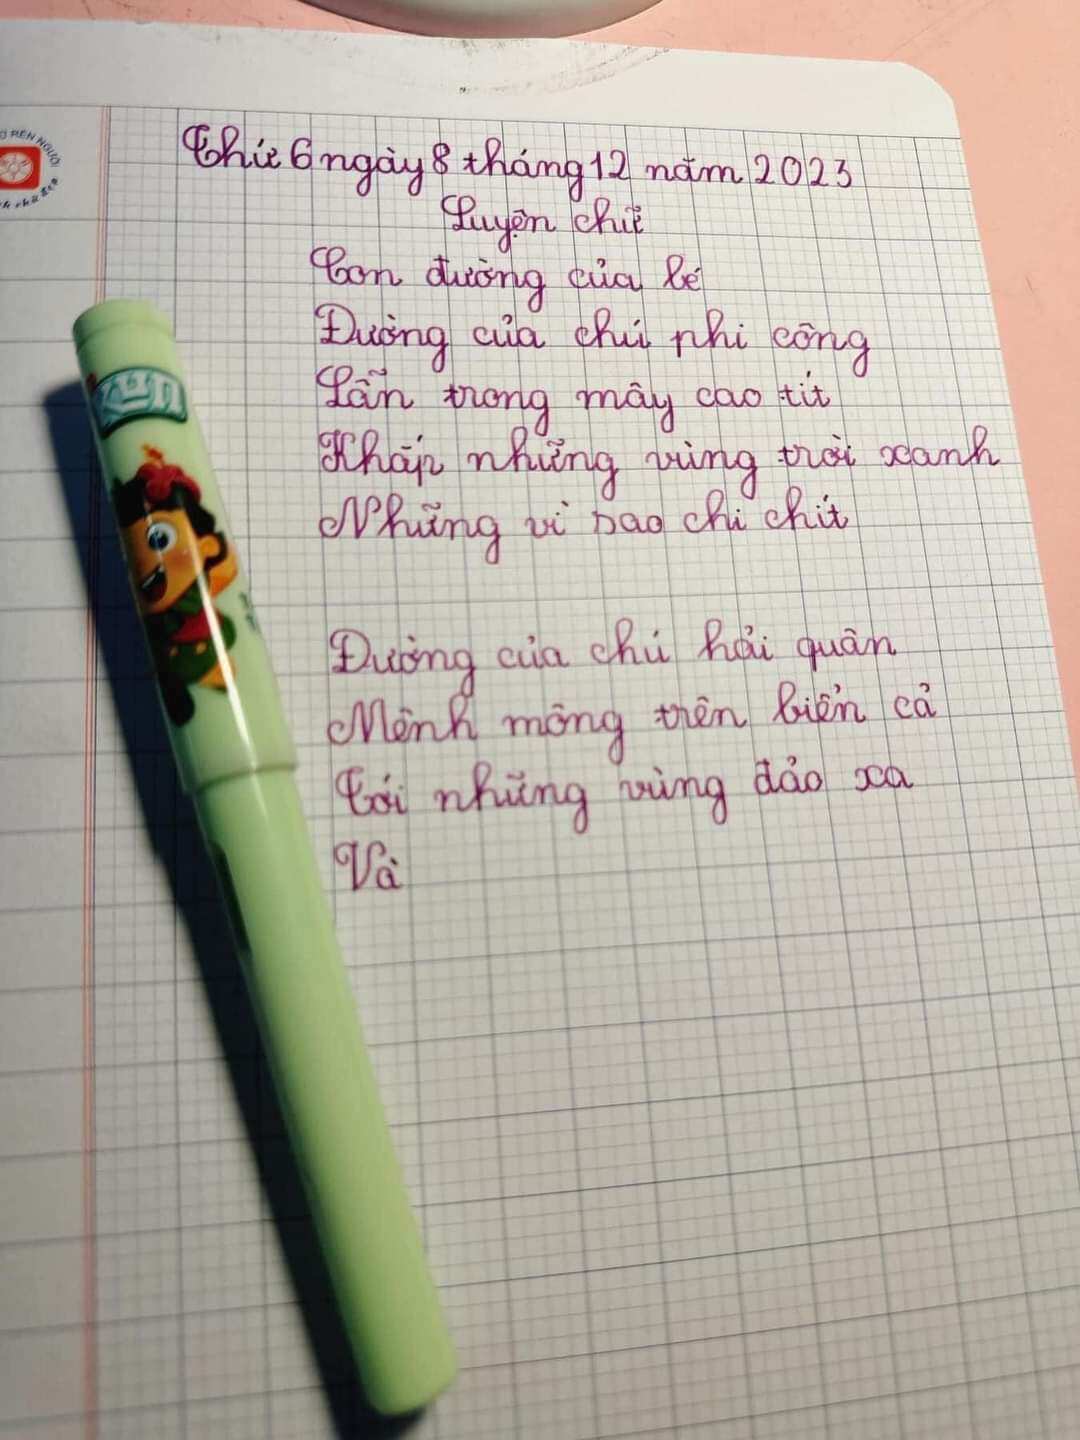 Thứ 6 ngày 8 tháng 12 năm 2023
Luyện chữ
Con đường của bé
Đường của chú phi công
Lẫn trong mây cao tít
Khắp những vùng trời xanh
Những vì sao chi chít
Đường của chú hải quân
Mênh mông trên biển cả
Tới những vùng đảo xa
Và